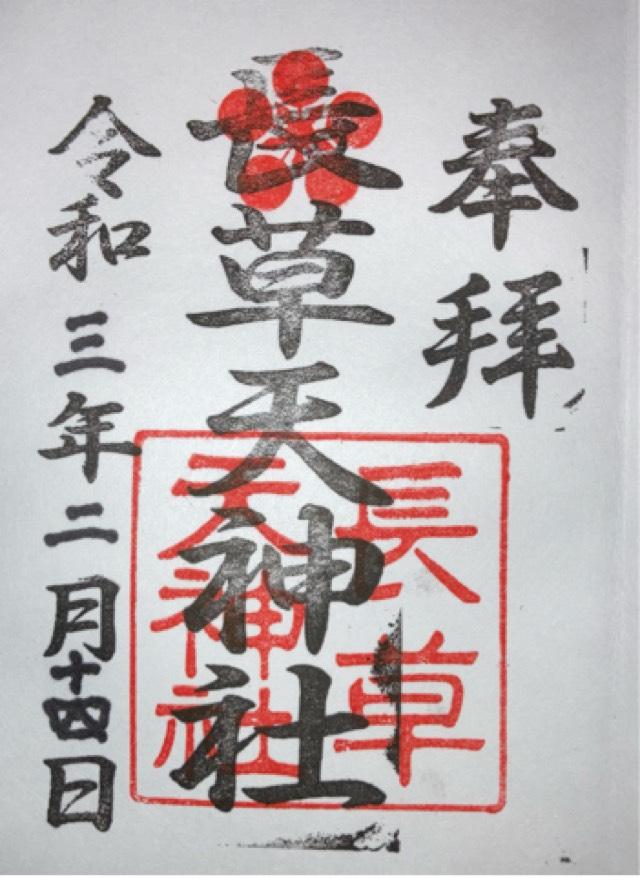 奉拝
長草天神社
長草
天神社
令和三年二月十四日